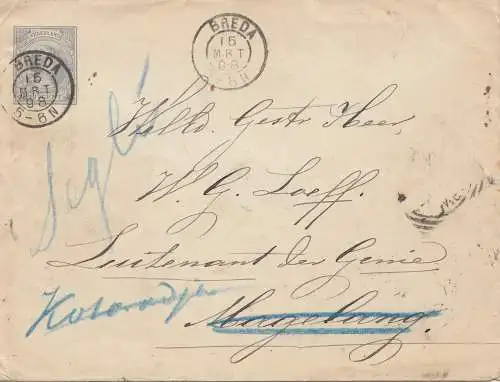 NEDERLAND
BREDA
15
MRT
98
5-6N
BREDA
15
MRT
98
5-6N
Segli
WelEd. Gestr Heer,
W. G. Loeff.
Luitenant der Genie
Kotaradja
Magelang.